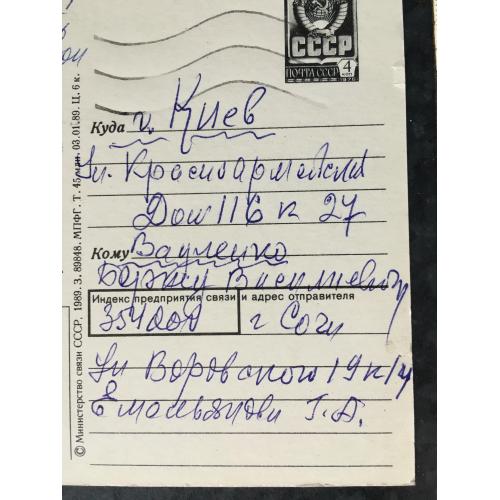 СССР
ПОЧТА СССР 4 коп
1976
Куда г. Киев
ул. Красноармейская
Дом 116 к 27
Кому
Василиевичу
Индекс предприятия связи и адрес отправителя
354000 г Сочи
ул Воровского 19 к 14
Г. А.
© Министерство связи СССР, 1989. З. 89848. МПФГ. Т. 45 млн. 03.01.89. Ц. 6 к.